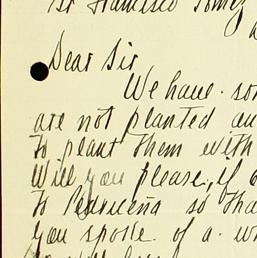 Sr Francisco Gomez
Dear Sir
We have
are not planted
to plant them with
Will you please, if
To so
you spoke of a